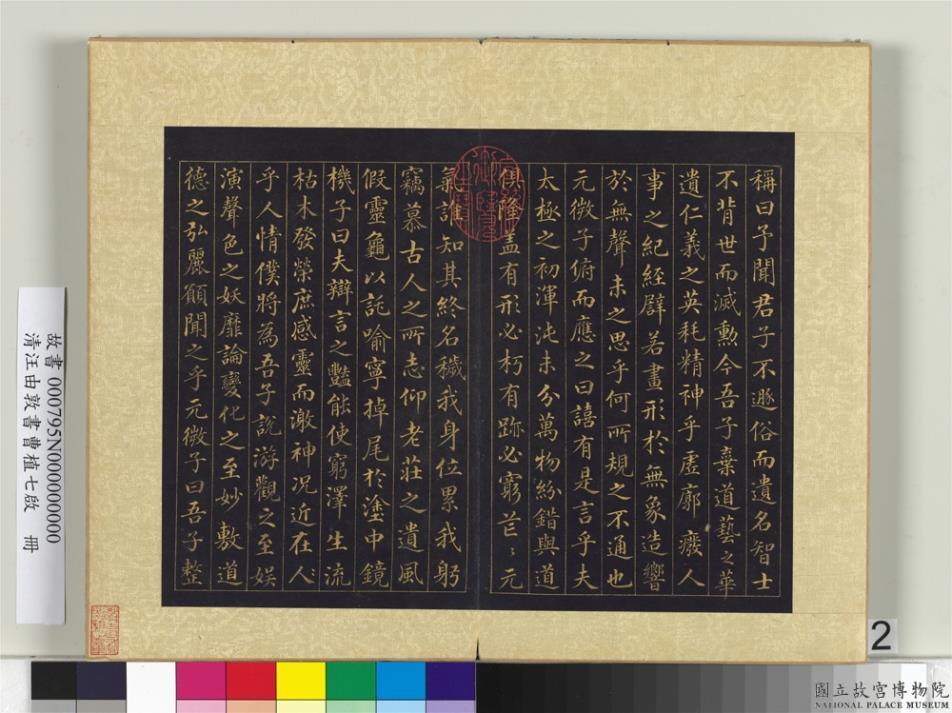 稱曰予聞君子不遯俗而遺名智士
不背世而滅勲今吾子棄道藝之華
遺仁義之英耗精神乎虛廓癈人
事之紀經辟若畫形於無象造響
於無聲未之思乎何所規之不通也
元微子俯而應之曰譆有是言乎夫
太極之初渾沌未分萬物紛錯與道
俱隆盖有形必朽有跡必窮芒〻元
氣誰知其終名穢我身位累我躬
竊慕古人之所志仰老莊之遺風
假靈龜以託喻寧掉尾於塗中鏡
機子曰夫辯言之豔能使窮澤生流
枯木發榮庶感靈而激神况近在
乎人情僕將為吾子說游觀之至娱
演聲色之妖靡論變化之至妙敷道
德之弘麗願聞之乎元微子曰吾子整
故書 000795N000000000
清汪由敦書曹植七啟 冊
2
國立故宮博物院
NATIONAL PALACE MUSEUM